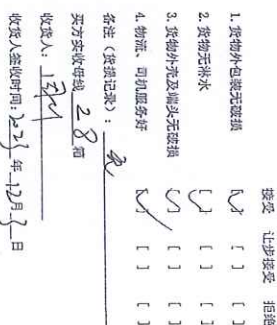 接受 让步接受 拒绝
1. 货物外包装无破损 [✓] [ ] [ ]
2. 货物无淋水 [✓] [ ] [ ]
3. 货物外壳及端头无破损 [✓] [ ] [ ]
4. 物流、司机服务好 [✓] [ ] [ ]
备注（货损记录）：
买方实收母线 28 箱
收货人：
收货人签收时间：202 年 12 月 3 日